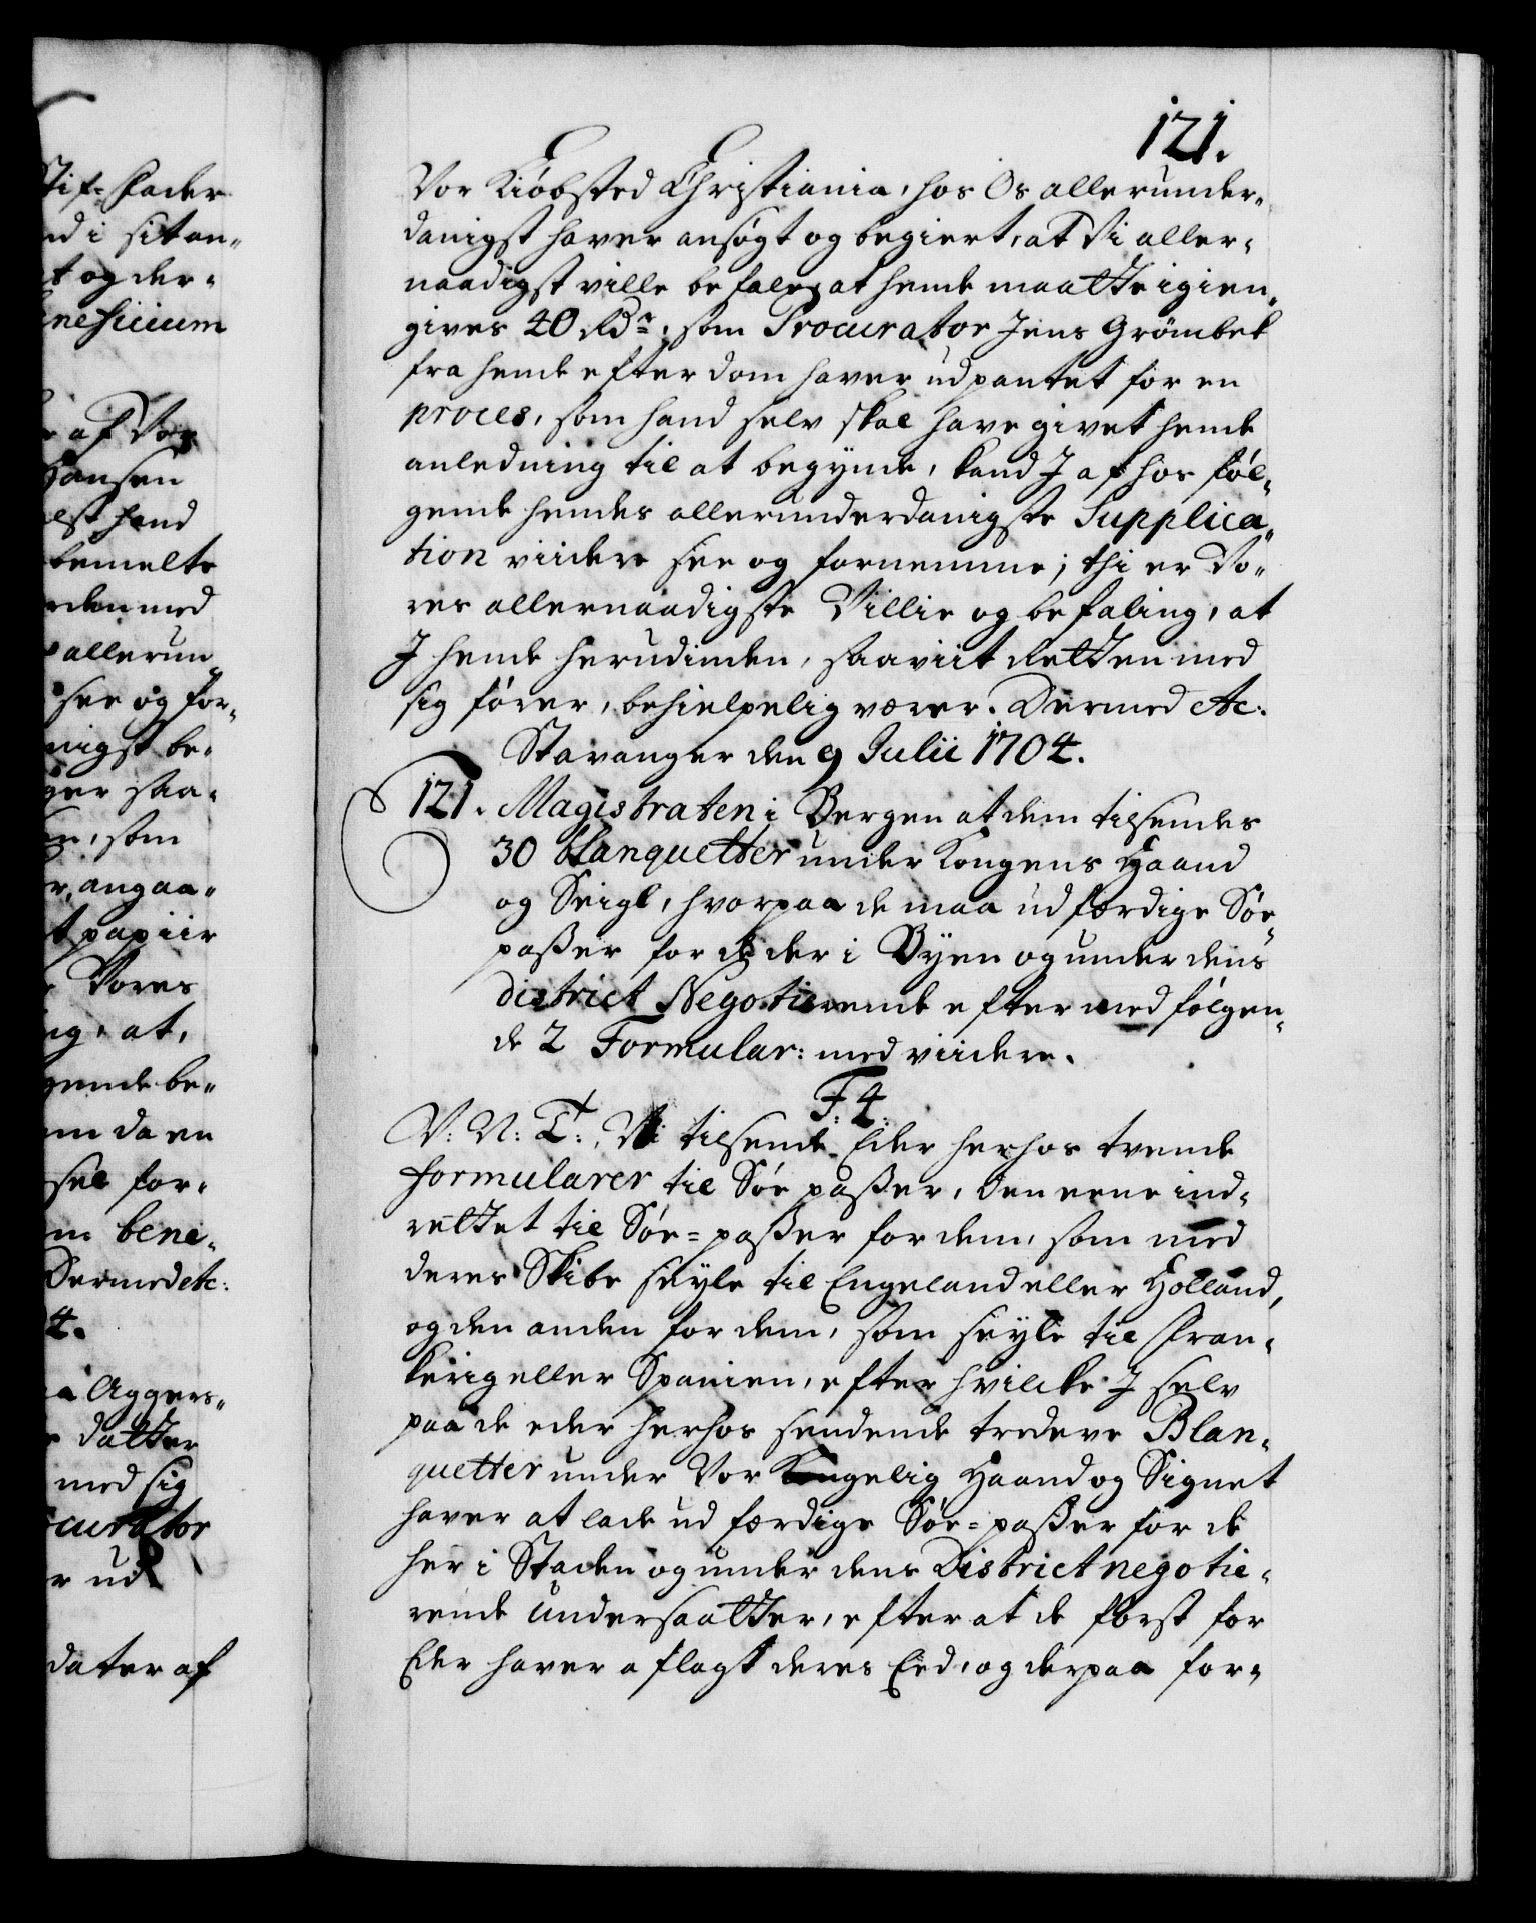 121.
Vor Kiöbsted Christiania, hos Os allerunder-
danigst haver ansögt og begiert, at Vi aller-
naadigst ville befale, at hende maatte igien-
gives 40 Rdr, som Procurator Jens Grömbek
fra hende efter dom haver udpantet for en
proces, som hand selv skal have givet hende
anledning til at begynde, kand I af hos föl-
gende hendes allerunderdanigste Supplica-
tion viidere see og fornemme; thi er Vo-
res allernaadigste Villie og befaling, at
I hende herudinden, saaviit Retten med
sig förer, behielpelig værer. Dermed etc.
Stavanger den 9 Julii 1704.
121. Magistraten i Bergen at dem tilsendes
30 blanquetter under Kongens Haand
og Seigl, hvorpaa de maa udfærdige Söe-
passer for de der i Byen og under dens
district Negotierende efter medfölgen-
de 2 Formular: med viidere.
F. 4.
V: N: T: Vi tilsende Eder herhos tvende
formularer til Söe passer, den eene ind-
rettet til Söe-passer for dem, som med
deres Skibe seyle til Engeland eller Holland,
og den anden for dem, som seyle til Fran-
kerig eller Spanien, efter hvilcke I selv
paa de eder herhos sendende tredeve Blan-
quetter under Vor Kongelig Haand og Signet
haver at lade udfærdige Söe-passer for de
her i Staden og under dens District negotie-
rende Undersaatter, efter at de först for
Eder haver aflagt deres Eed, og derpaa for-
Stif-Fader
nd i sit an-
t og der-
neficium
af Vor
Hansen
elst hand
bemelte
rden med
allerun-
see og for-
nigst be-
ger saa-
som
angaa-
t papiir
Vores
ng, at,
gende be-
m da en
sel for-
m bene-
Dermed etc:
4.
a Agger-
datter
med sig
curator
r ud
dater af